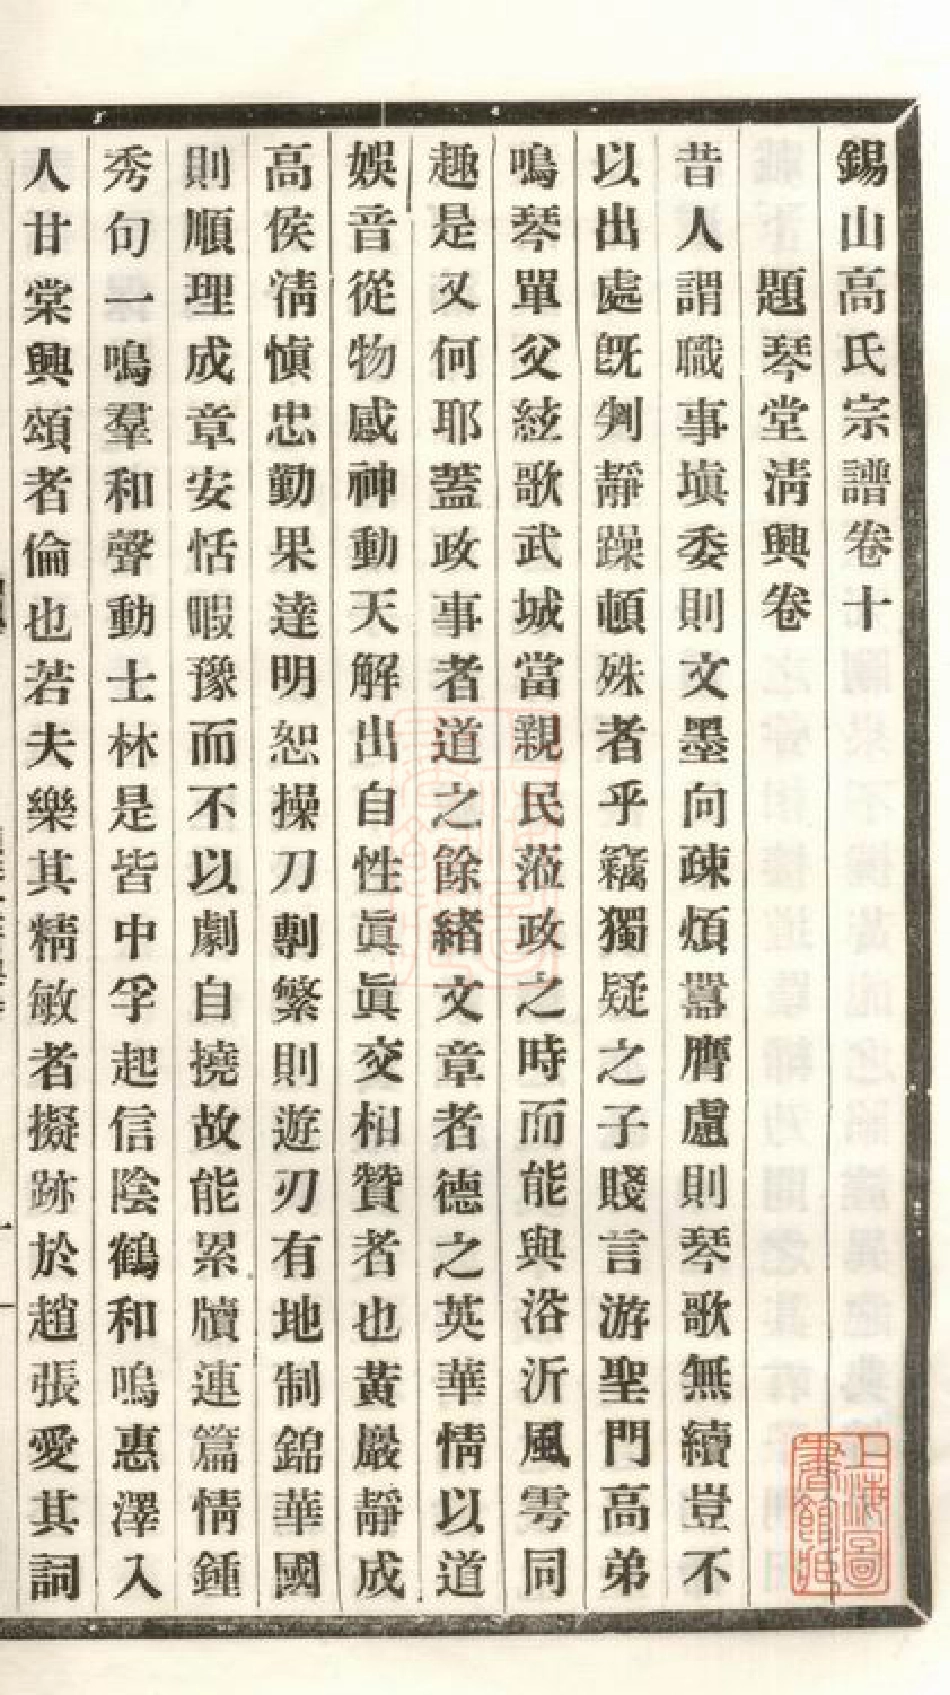 錫山高氏宗譜卷十
題琴堂淸興卷
昔人謂職事塡委則文墨向疎煩嚻膺慮則琴歌無續豈不
以出處旣判靜躁頓殊者乎竊獨疑之子賤言游聖門高弟
鳴琴單父絃歌武城當親民蒞政之時而能與浴沂風雩同
趣是又何耶蓋政事者道之餘緖文章者德之英華情以道
娛音從物感神動天解出自性眞眞交相贊者也黃巖靜成
高侯淸愼忠勤果達明恕操刀剸繁則遊刃有地制錦華國
則順理成章安恬暇豫而不以劇自撓故能累牘連篇情鍾
秀句一鳴羣和聲動士林是皆中孚起信陰鶴和鳴惠澤入
人甘棠興頌者倫也若夫樂其精敏者擬跡於趙張愛其詞
上海圖書館藏